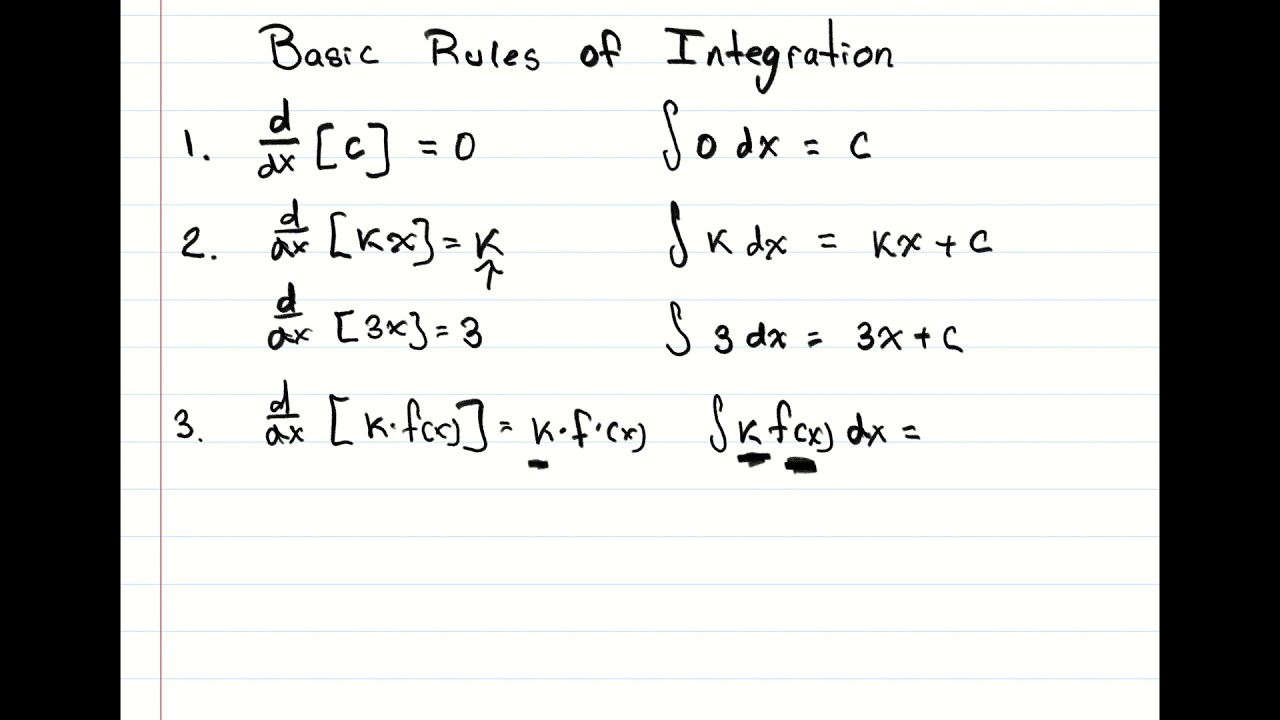 Basic Rules of Integration
1. d/dx [c] = 0 ∫ 0 dx = c
2. d/dx [kx] = k ∫ k dx = kx + c
↑
d/dx [3x] = 3 ∫ 3 dx = 3x + c
3. d/dx [k·f(x)] = k·f'(x) ∫ k f(x) dx =